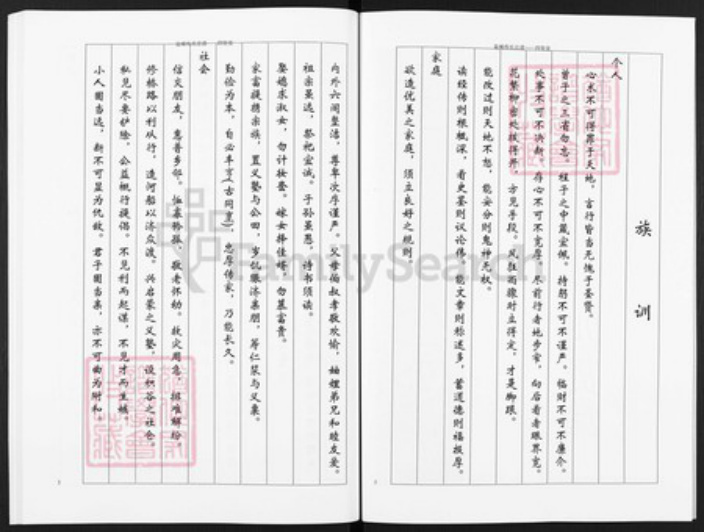 族训
个人
心术不可得罪于天地，言行皆当无愧于圣贤。
曾子之三省勿忘，程子之中箴宜佩。持躬不可不谨严。临财不可不廉介。
处事不可不决断，存心不可不宽厚。尽前行者地步窄，向后看者眼界宽。
花繁柳密处拨得开，方见手段。风狂雨骤时立得定，才是脚跟。
能改过则天地不怒，能安分则鬼神无权。
读经传则根柢深，看史鉴则议论伟。能文章则称述多，蓄道德则福报厚。
家庭
欲造优美之家庭，须立良好之规则。
内外六闾整洁，尊卑次序谨严。父母伯叔孝敬欢愉，妯娌弟兄和睦友爱。
祖宗虽远，祭祀宜诚。子孙虽愚，诗书须读。
娶媳求淑女，勿计妆奁。嫁女择佳婿，勿慕富贵。
家富提携宗族，置义塾与公田，岁饥赈济亲朋，筹仁浆与义粟。
勤俭为本，自必丰亨(古同烹)，忠厚传家，乃能长久。
社会
信交朋友，惠普乡邻。恤寡矜孤，敬老怀幼。救灾周急，排难解纷。
修桥路以利从行，造河船以济众渡。兴启蒙之义塾，设积谷之社仓。
私见尽要铲除，公益概行提倡。不见利而起谋，不见才而生嫉。
小人固当远，断不可显为仇敌。君子固当亲，亦不可曲为附和。
FamilySearch